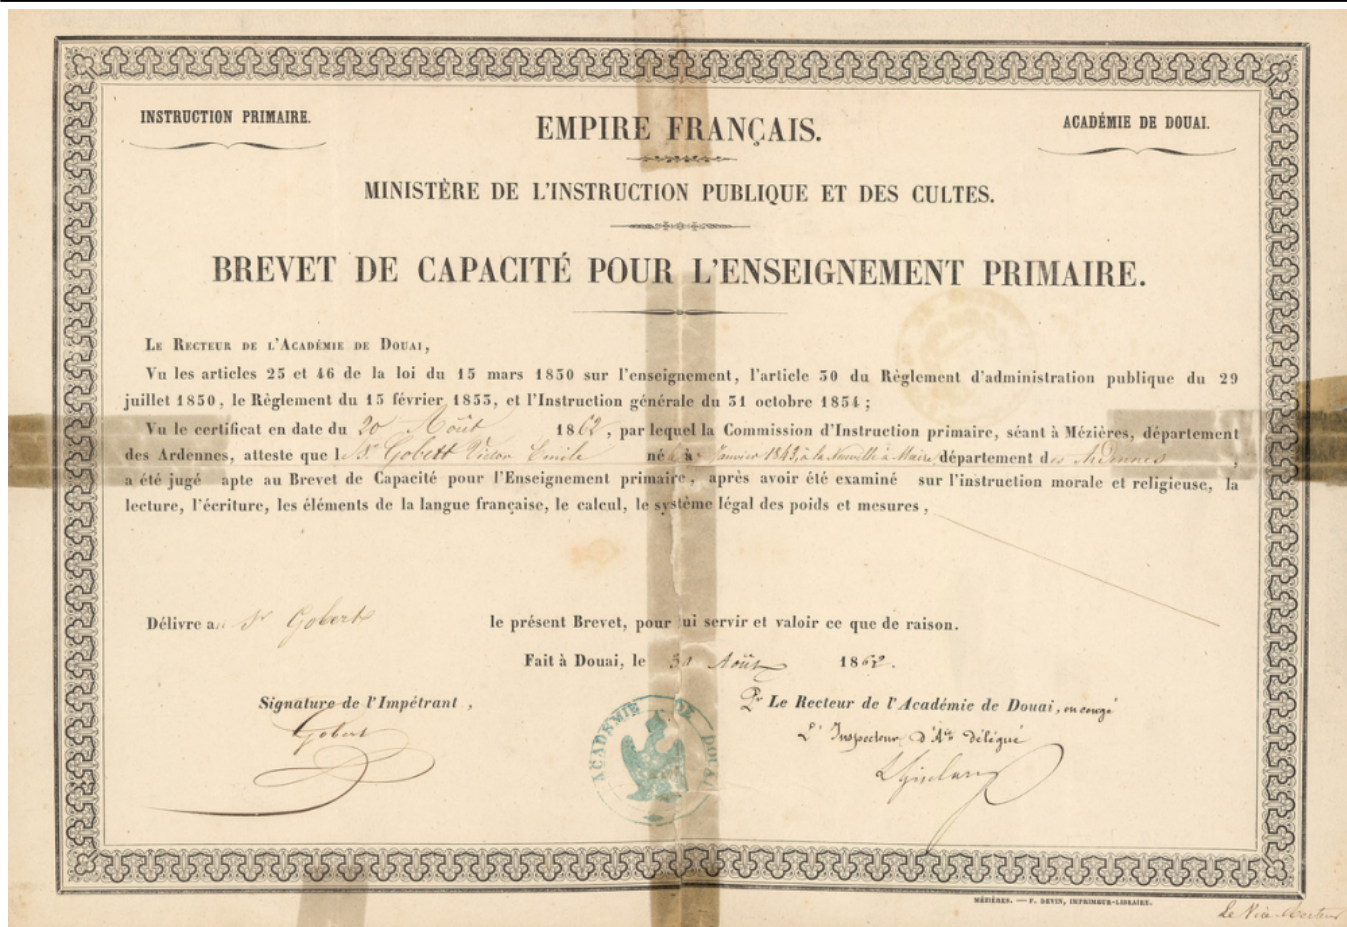 INSTRUCTION PRIMAIRE.
EMPIRE FRANÇAIS.
ACADÉMIE DE DOUAI.
MINISTÈRE DE L'INSTRUCTION PUBLIQUE ET DES CULTES.
BREVET DE CAPACITÉ POUR L'ENSEIGNEMENT PRIMAIRE.
LE RECTEUR DE L'ACADÉMIE DE DOUAI,
Vu les articles 25 et 46 de la loi du 15 mars 1850 sur l'enseignement, l'article 50 du Règlement d'administration publique du 29
juillet 1850, le Règlement du 15 février 1853, et l'Instruction générale du 31 octobre 1854 ;
Vu le certificat en date du 20 Août 1862, par lequel la Commission d'Instruction primaire, séant à Mézières, département
des Ardennes, atteste que le Sr Gobert Victor Emile né Janvier 1843, à la Neuville à Maire, département des Ardennes,
a été jugé apte au Brevet de Capacité pour l'Enseignement primaire, après avoir été examiné sur l'instruction morale et religieuse, la
lecture, l'écriture, les éléments de la langue française, le calcul, le système légal des poids et mesures,
Délivré au Sr Gobert le présent Brevet, pour lui servir et valoir ce que de raison.
Fait à Douai, le 30 Août 1862.
Signature de l'Impétrant,
Pr Le Recteur de l'Académie de Douai, en congé
L'Inspecteur d'Aie délégué
Gobert
ACADÉMIE DE DOUAI
MÉZIÈRES. — F. DEVIN, IMPRIMEUR-LIBRAIRE.
Le Vice-Recteur